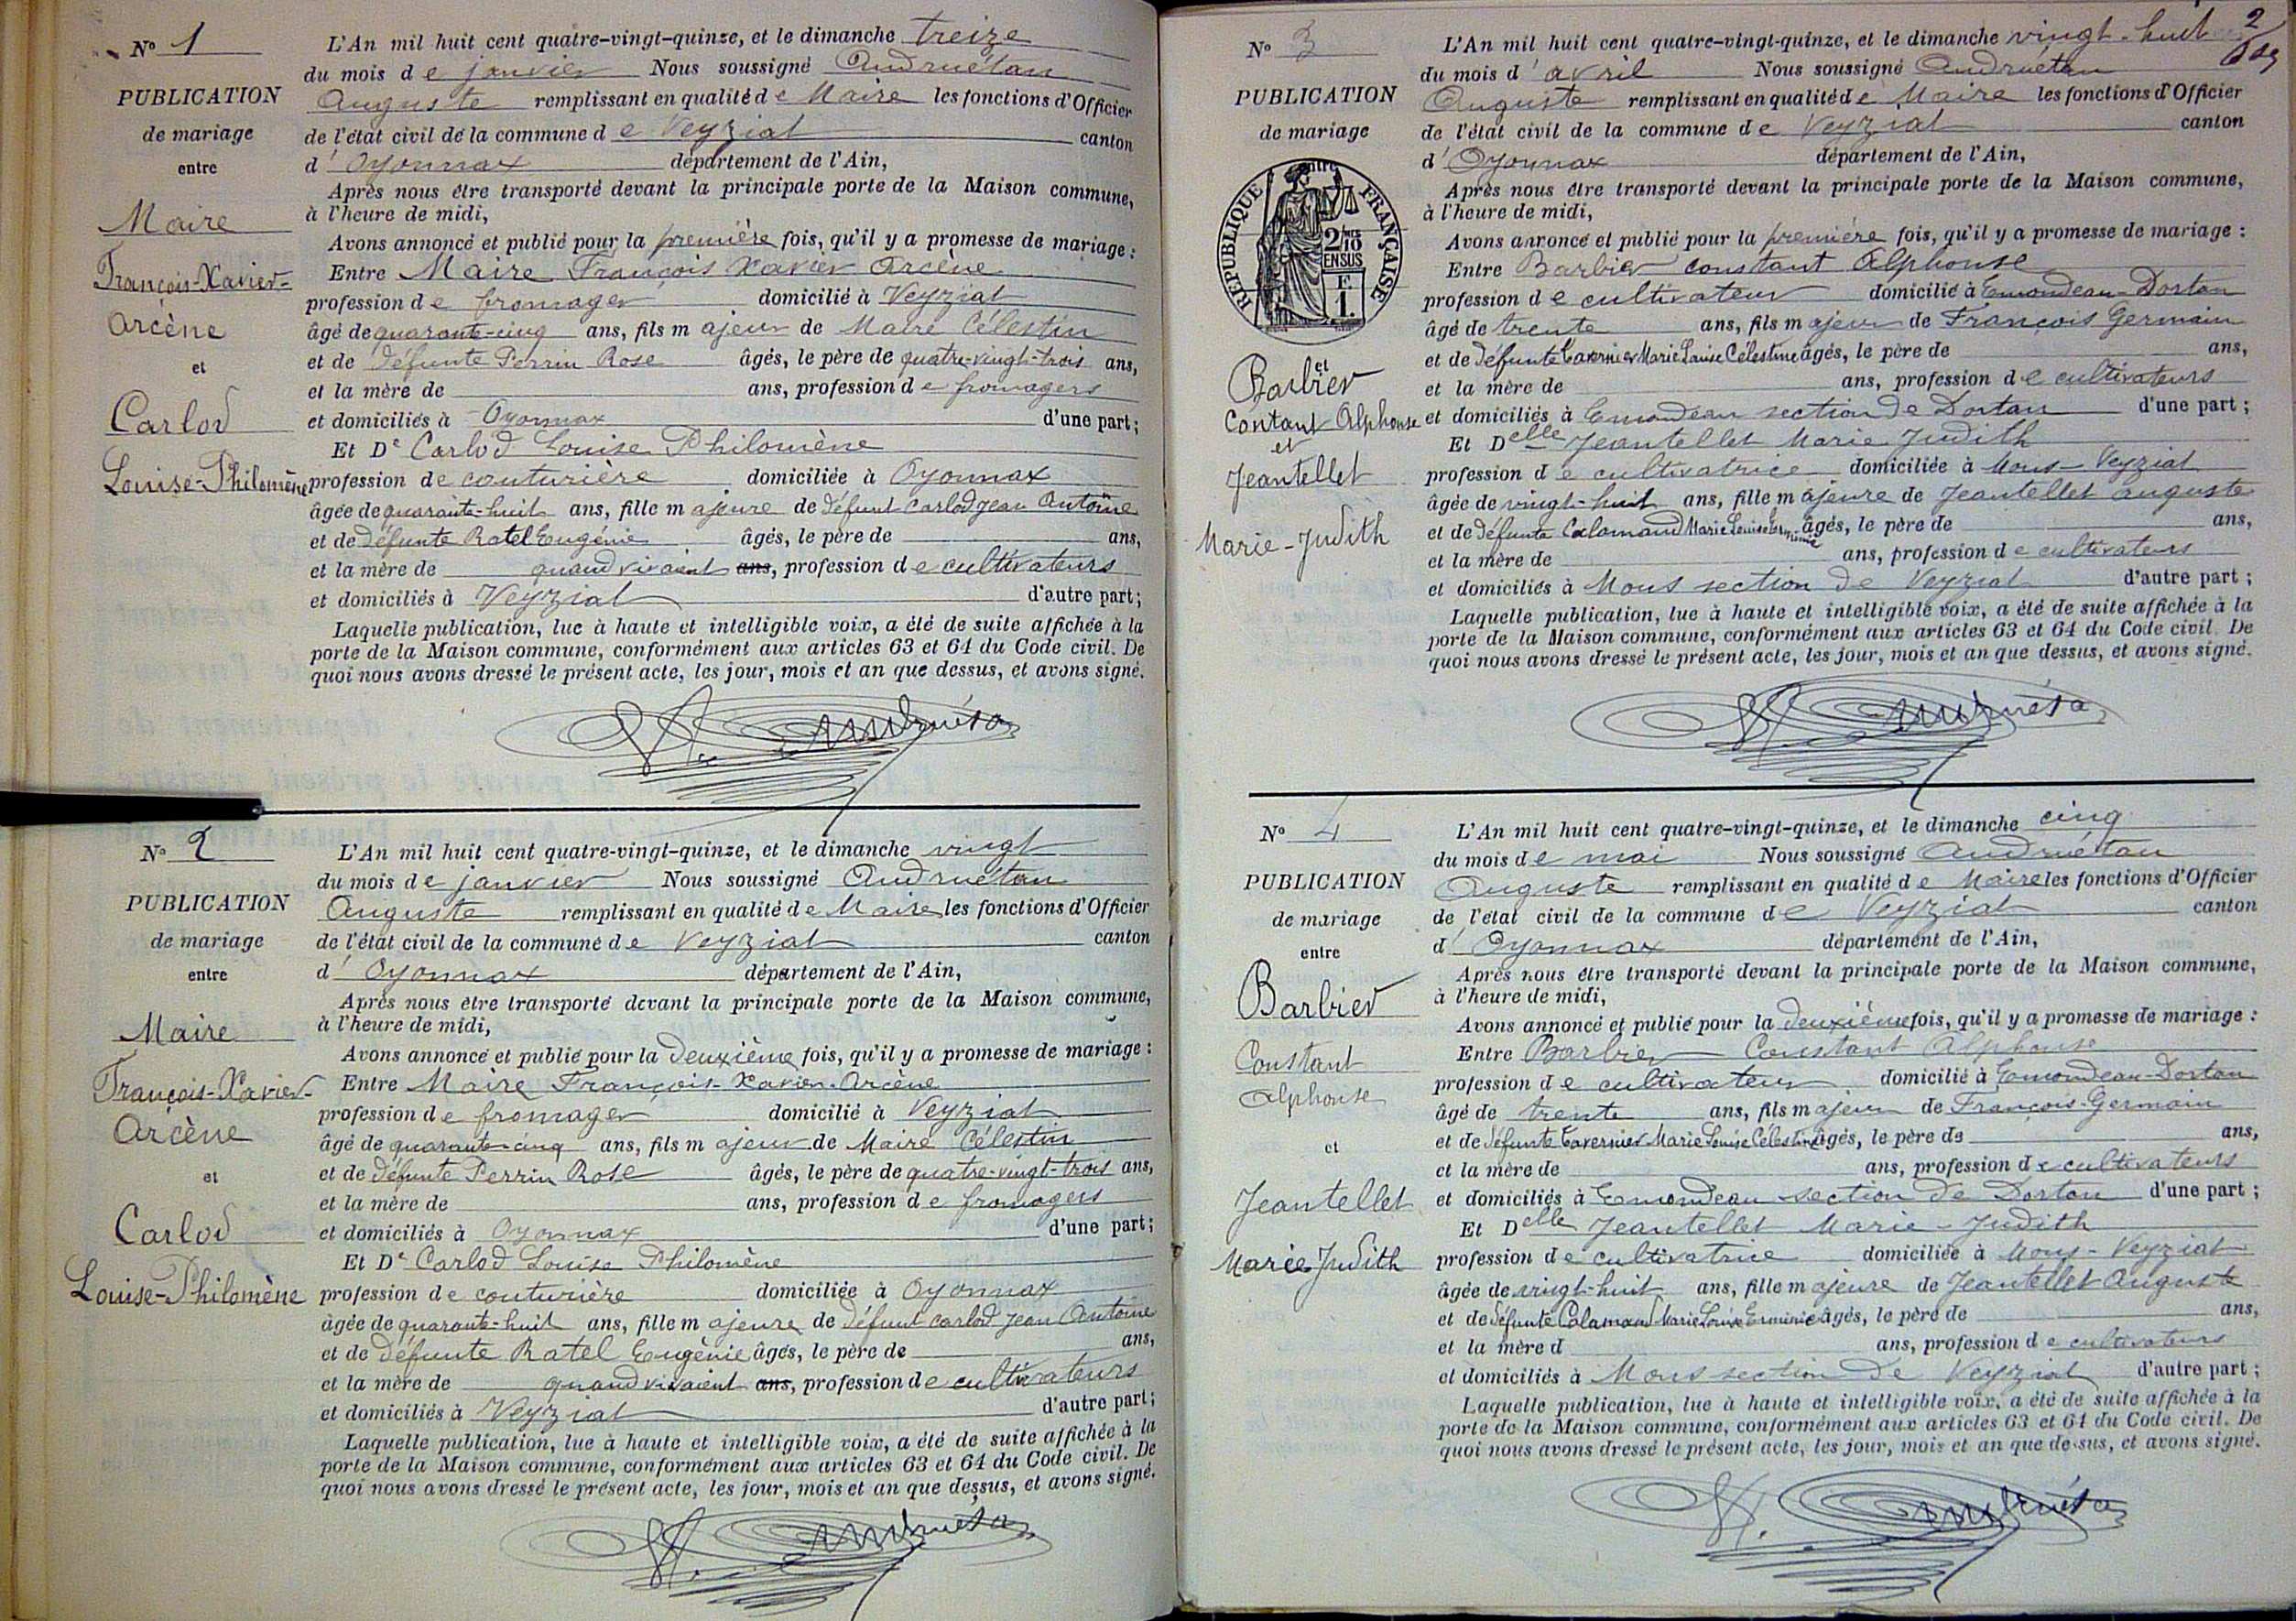 Nº 1
PUBLICATION
de mariage
entre
Maire
François-Xavier-
Arcène
et
Carlod
Louise-Philomène
L'An mil huit cent quatre-vingt-quinze, et le dimanche treize
du mois de janvier Nous soussigné Andruétan
Auguste remplissant en qualité de Maire les fonctions d'Officier
de l'état civil de la commune de Veyziat canton
d'Oyonnax département de l'Ain,
Après nous être transporté devant la principale porte de la Maison commune,
à l'heure de midi,
Avons annoncé et publié pour la première fois, qu'il y a promesse de mariage :
Entre Maire François Xavier Arcène
profession de fromager domicilié à Veyziat
âgé de quarante-cinq ans, fils majeur de Maire Célestin
et de défunte Perrin Rose âgés, le père de quatre-vingt-trois ans,
et la mère de ans, profession de fromagers
et domiciliés à Oyonnax d'une part ;
Et De Carlod Louise Philomène
profession de couturière domiciliée à Oyonnax
âgée de quarante-huit ans, fille majeure de défunt Carlod Jean Antoine
et de défunte Ratel Eugénie âgés, le père de ans,
et la mère de quand vivaient ans, profession de cultivateurs
et domiciliés à Veyziat d'autre part ;
Laquelle publication, lue à haute et intelligible voix, a été de suite affichée à la
porte de la Maison commune, conformément aux articles 63 et 64 du Code civil. De
quoi nous avons dressé le présent acte, les jour, mois et an que dessus, et avons signé.
Andruétan
Nº 2
PUBLICATION
de mariage
entre
Maire
François-Xavier-
Arcène
et
Carlod
Louise-Philomène
L'An mil huit cent quatre-vingt-quinze, et le dimanche vingt
du mois de janvier Nous soussigné Andruétan
Auguste remplissant en qualité de Maire les fonctions d'Officier
de l'état civil de la commune de Veyziat canton
d'Oyonnax département de l'Ain,
Après nous être transporté devant la principale porte de la Maison commune,
à l'heure de midi,
Avons annoncé et publié pour la deuxième fois, qu'il y a promesse de mariage :
Entre Maire François-Xavier-Arcène
profession de fromager domicilié à Veyziat
âgé de quarante-cinq ans, fils majeur de Maire Célestin
et de défunte Perrin Rose âgés, le père de quatre-vingt-trois ans,
et la mère de ans, profession de fromagers
et domiciliés à Oyonnax d'une part ;
Et De Carlod Louise Philomène
profession de couturière domiciliée à Oyonnax
âgée de quarante-huit ans, fille majeure de défunt Carlod Jean Antoine
et de défunte Ratel Eugénie âgés, le père de ans,
et la mère de quand vivaient ans, profession de cultivateurs
et domiciliés à Veyziat d'autre part ;
Laquelle publication, lue à haute et intelligible voix, a été de suite affichée à la
porte de la Maison commune, conformément aux articles 63 et 64 du Code civil. De
quoi nous avons dressé le présent acte, les jour, mois et an que dessus, et avons signé.
Andruétan
2
Nº 3
PUBLICATION
de mariage
entre
RÉPUBLIQUE FRANÇAISE
2/10
EN SUS
F
1.
et
Barbier
Contant Alphonse
et
Jeantellet
Marie-Judith
L'An mil huit cent quatre-vingt-quinze, et le dimanche vingt-huit
du mois d'avril Nous soussigné Andruétan
Auguste remplissant en qualité de Maire les fonctions d'Officier
de l'état civil de la commune de Veyziat canton
d'Oyonnax département de l'Ain,
Après nous être transporté devant la principale porte de la Maison commune,
à l'heure de midi,
Avons annoncé et publié pour la première fois, qu'il y a promesse de mariage :
Entre Barbier Constant Alphonse
profession de cultivateur domicilié à Emondeau-Dortan
âgé de trente ans, fils majeur de François Germain
et de défunte Tavernier Marie Louise Célestine âgés, le père de ans,
et la mère de ans, profession de cultivateurs
et domiciliés à Emondeau section de Dortan d'une part ;
Et Delle Jeantellet Marie Judith
profession de cultivatrice domiciliée à Mons-Veyziat
âgée de vingt-huit ans, fille majeure de Jeantellet Auguste
et de défunte Calamand Marie Louise Erminie âgés, le père de ans,
et la mère de ans, profession de cultivateurs
et domiciliés à Mons section de Veyziat d'autre part ;
Laquelle publication, lue à haute et intelligible voix, a été de suite affichée à la
porte de la Maison commune, conformément aux articles 63 et 64 du Code civil. De
quoi nous avons dressé le présent acte, les jour, mois et an que dessus, et avons signé.
Andruétan
Nº 4
PUBLICATION
de mariage
entre
Barbier
Constant
Alphonse
et
Jeantellet
Marie Judith
L'An mil huit cent quatre-vingt-quinze, et le dimanche cinq
du mois de mai Nous soussigné Andruétan
Auguste remplissant en qualité de Maire les fonctions d'Officier
de l'état civil de la commune de Veyziat canton
d'Oyonnax département de l'Ain,
Après nous être transporté devant la principale porte de la Maison commune,
à l'heure de midi,
Avons annoncé et publié pour la deuxième fois, qu'il y a promesse de mariage :
Entre Barbier Constant Alphonse
profession de cultivateur domicilié à Emondeau-Dortan
âgé de trente ans, fils majeur de François-Germain
et de défunte Tavernier Marie Louise Célestine âgés, le père de ans,
et la mère de ans, profession de cultivateurs
et domiciliés à Emondeau section de Dortan d'une part ;
Et Delle Jeantellet Marie-Judith
profession de cultivatrice domiciliée à Mons-Veyziat
âgée de vingt-huit ans, fille majeure de Jeantellet Auguste
et de défunte Calamand Marie Louise Erminie âgés, le père de ans,
et la mère d ans, profession de cultivateurs
et domiciliés à Mons section de Veyziat d'autre part ;
Laquelle publication, lue à haute et intelligible voix, a été de suite affichée à la
porte de la Maison commune, conformément aux articles 63 et 64 du Code civil. De
quoi nous avons dressé le présent acte, les jour, mois et an que dessus, et avons signé.
Andruétan